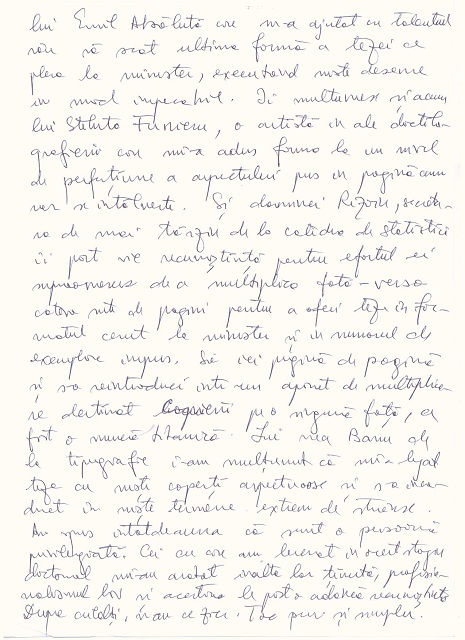 lui Emil Absolută care m-a ajutat cu talentul
său să scot ultima formă a tezei ce
pleca la minister, executând niște desene
în mod impecabil. Îi mulțumesc și acum
lui Steluța Furnicu, o artistă în ale dactilo-
grafierii care mi-a adus forma la un nivel
de perfecțiune a aspectului pus în pagină cum
rar se întâlnește. Și doamnei secreta-
ră de mai târziu de la catedra de Statistică
îi port vie recunoștință pentru efortul ei
de a multiplica față-verso
câteva sute de pagini pentru a oferi teza în for-
matul cerut la minister și în numărul de
exemplare impus. Să iei pagină de pagină
și s-o reintroduci într-un aparat de multiplica-
re destinat pe o singură față, a
fost o muncă titanică. Lui nea Banu de
la tipografie i-am mulțumit că mi-a legat
teza cu niște coperți aspectuoase și s-a înca-
drat în niște termene extrem de strânse.
Am spus întotdeauna că sunt o persoană
privilegiată. Cei cu care am lucrat în acest stagiu
doctoral mi-au arătat înalta lor ținută, profesio-
nalismul lor și acestora le port o adâncă recunoștință
După ceilalți, n-au ce face. Tac pur și simplu.